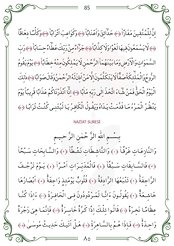 85
إِنَّ لِلْمُتَّقِينَ مَفَازًا ﴿٣١﴾ حَدَائِقَ وَأَعْنَابًا ﴿٣٢﴾ وَكَوَاعِبَ أَتْرَابًا ﴿٣٣﴾ وَكَأْسًا دِهَاقًا
﴿٣٤﴾ لَا يَسْمَعُونَ فِيهَا لَغْوًا وَلَا كِذَّابًا ﴿٣٥﴾ جَزَاءً مِنْ رَبِّكَ عَطَاءً حِسَابًا ﴿٣٦﴾ رَبِّ
السَّمٰوَاتِ وَالْأَرْضِ وَمَا بَيْنَهُمَا الرَّحْمٰنِ لَا يَمْلِكُونَ مِنْهُ خِطَابًا ﴿٣٧﴾ يَوْمَ يَقُومُ
الرُّوحُ وَالْمَلٰئِكَةُ صَفًّا لَا يَتَكَلَّمُونَ إِلَّا مَنْ أَذِنَ لَهُ الرَّحْمٰنُ وَقَالَ صَوَابًا ﴿٣٨﴾ ذٰلِكَ
الْيَوْمُ الْحَقُّ فَمَنْ شَاءَ اتَّخَذَ إِلَى رَبِّهِ مَآبًا ﴿٣٩﴾ إِنَّا أَنْذَرْنَاكُمْ عَذَابًا قَرِيبًا يَوْمَ
يَنْظُرُ الْمَرْءُ مَا قَدَّمَتْ يَدَاهُ وَيَقُولُ الْكَافِرُ يَا لَيْتَنِي كُنْتُ تُرَابًا ﴿٤٠﴾
NAZİAT SURESİ
بِسْمِ اللّٰهِ الرَّحْمٰنِ الرَّحِيمِ
وَالنَّازِعَاتِ غَرْقًا ﴿١﴾ وَالنَّاشِطَاتِ نَشْطًا ﴿٢﴾ وَالسَّابِحَاتِ سَبْحًا
﴿٣﴾ فَالسَّابِقَاتِ سَبْقًا ﴿٤﴾ فَالْمُدَبِّرَاتِ أَمْرًا ﴿٥﴾ يَوْمَ تَرْجُفُ
الرَّاجِفَةُ ﴿٦﴾ تَتْبَعُهَا الرَّادِفَةُ ﴿٧﴾ قُلُوبٌ يَوْمَئِذٍ وَاجِفَةٌ ﴿٨﴾ أَبْصَارُهَا
خَاشِعَةٌ ﴿٩﴾ يَقُولُونَ أَئِنَّا لَمَرْدُودُونَ فِي الْحَافِرَةِ ﴿١٠﴾ أَئِذَا كُنَّا
عِظَامًا نَخِرَةً ﴿١١﴾ قَالُوا تِلْكَ إِذًا كَرَّةٌ خَاسِرَةٌ ﴿١٢﴾ فَإِنَّمَا هِيَ زَجْرَةٌ
وَاحِدَةٌ ﴿١٣﴾ فَإِذَا هُمْ بِالسَّاهِرَةِ ﴿١٤﴾ هَلْ أَتَاكَ حَدِيثُ مُوسَى ﴿١٥﴾
٨٥